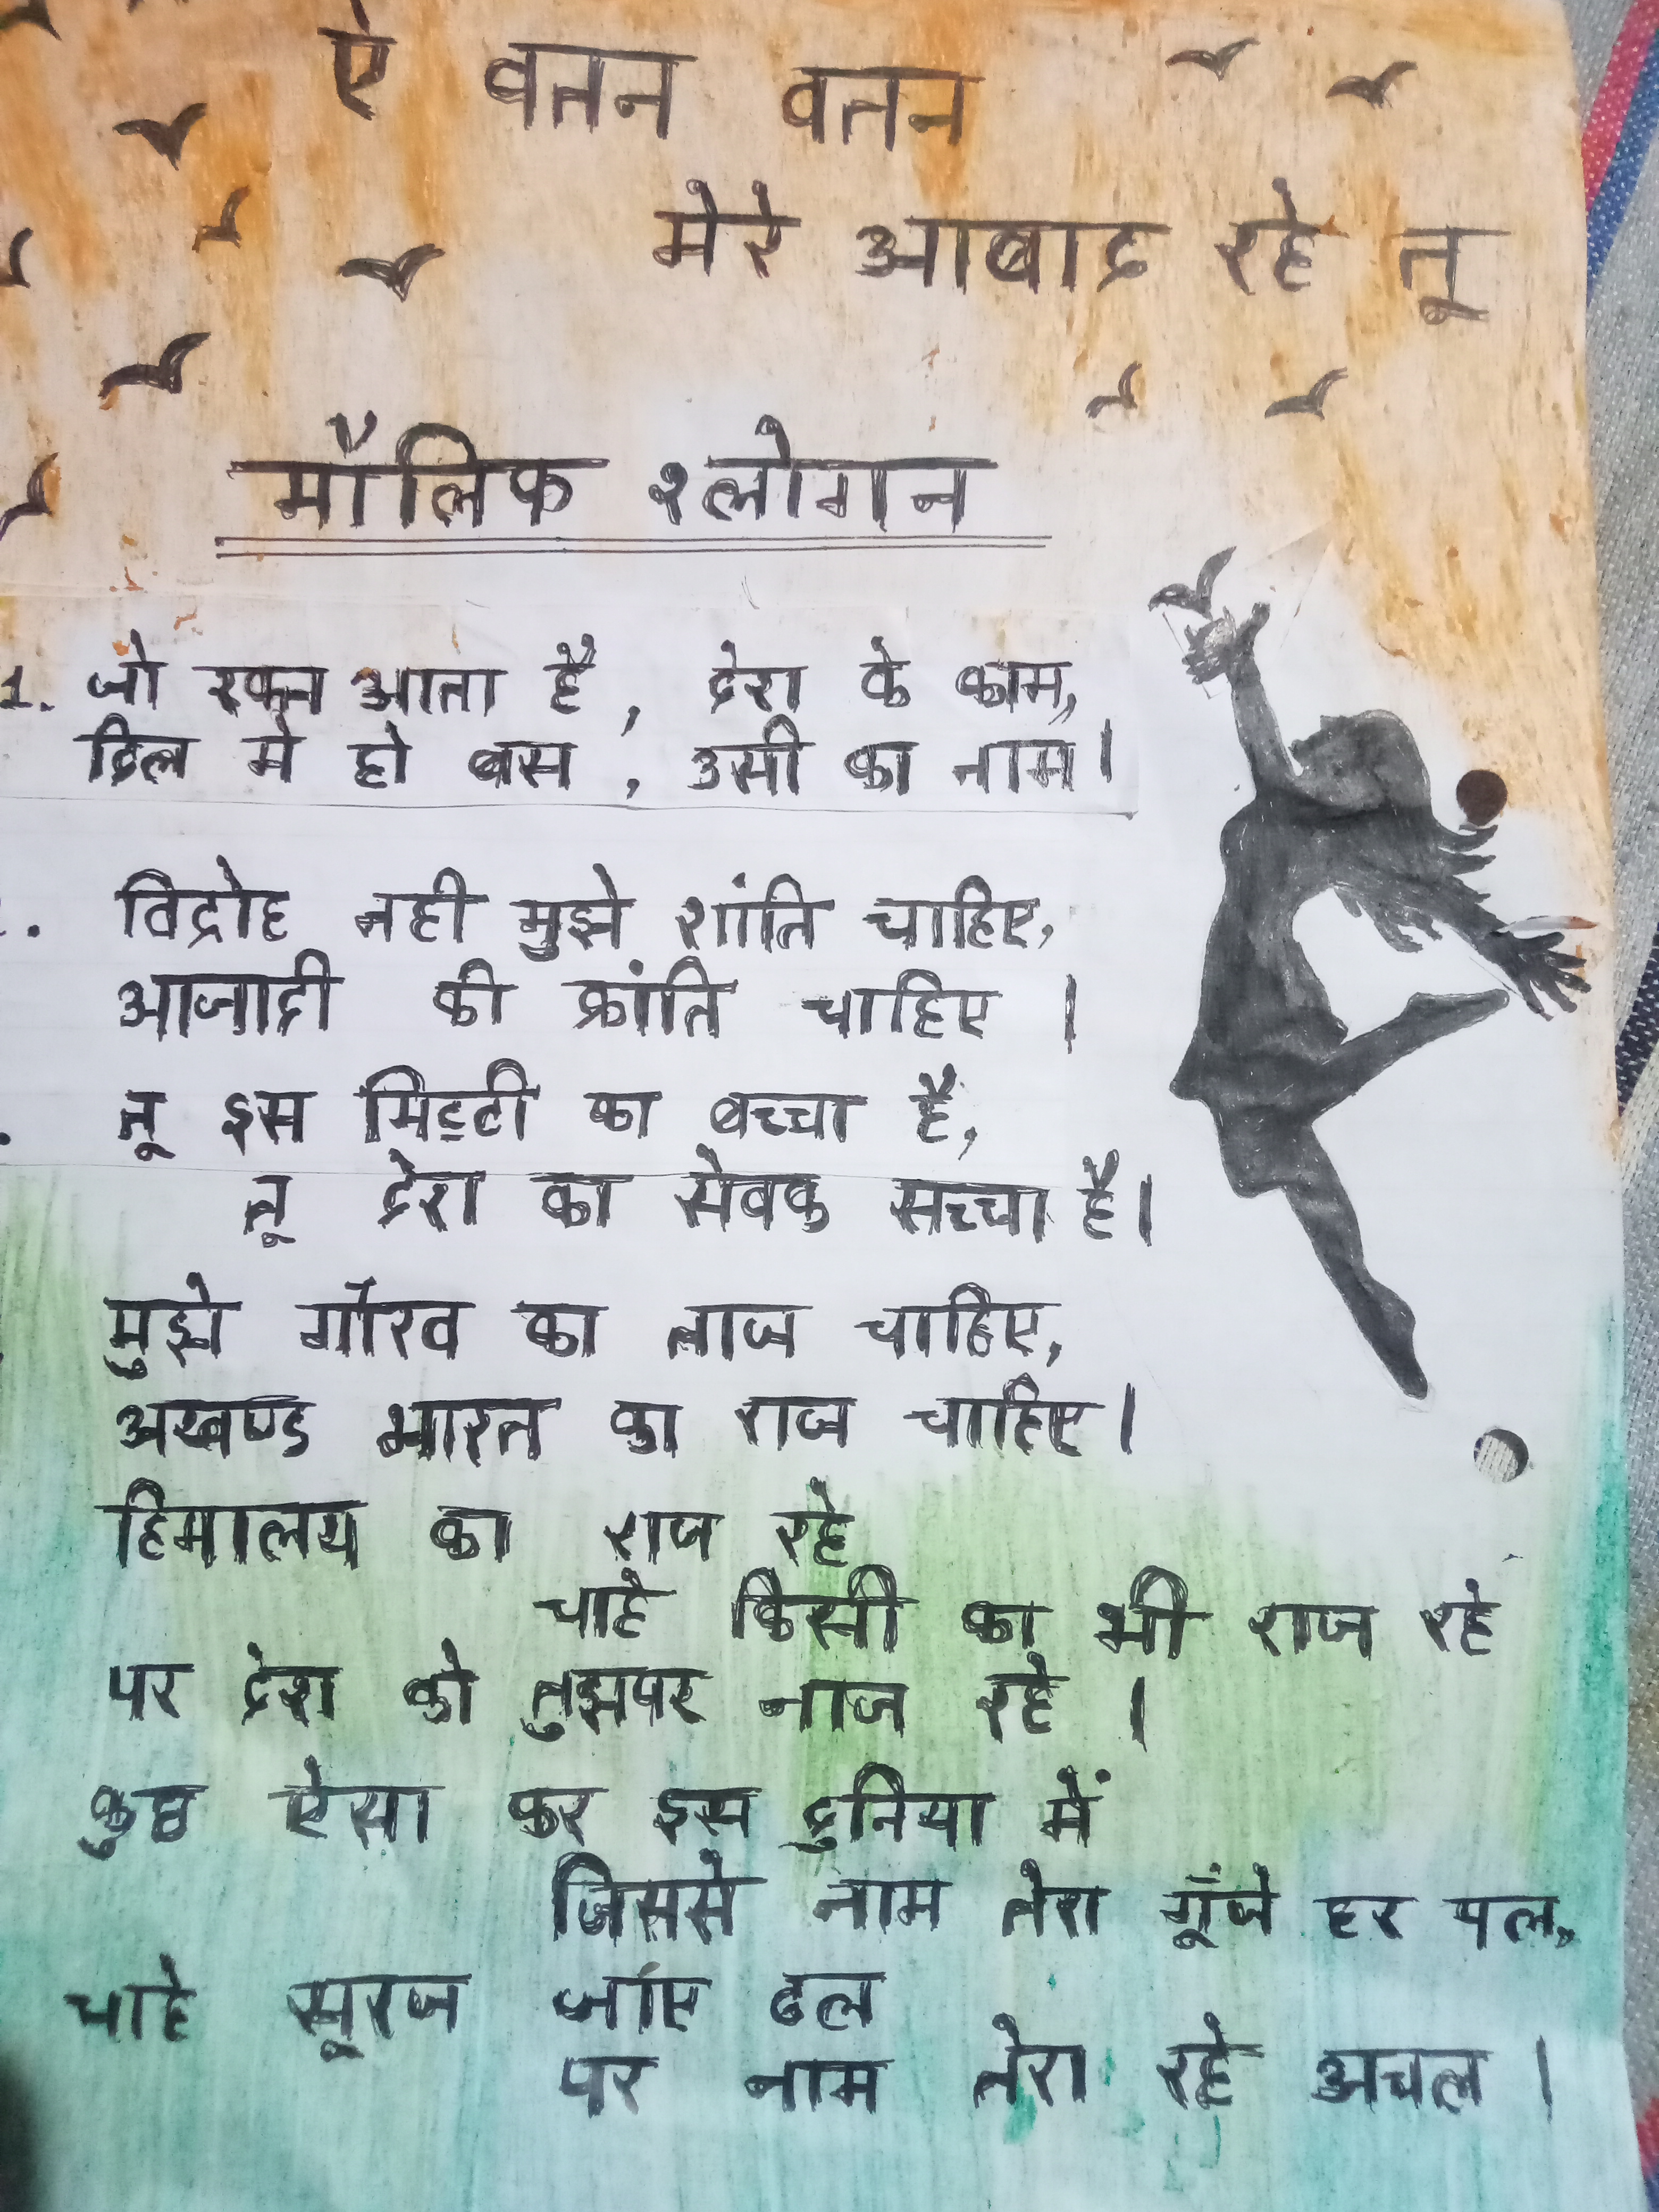 ऐ वतन वतन
मेरे आबाद रहे तू
मौलिक श्लोगन
1. जो रक्त आता है, देश के काम,
दिल मे हो बस, उसी का नाम।
विद्रोह नही मुझे शांति चाहिए,
आजादी की क्रांति चाहिए ।
तू इस मिट्टी का बच्चा है,
तू देश का सेवक सच्चा है।
मुझे गौरव का ताज चाहिए,
अखण्ड भारत का राज चाहिए।
हिमालय का राज रहे
चाहे किसी का भी राज रहे
पर देश को तुझपर नाज रहे ।
कुछ ऐसा कर इस दुनिया में
जिससे नाम तेरा गूँजे हर पल,
चाहे सूरज जाए ढल
पर नाम तेरा रहे अचल ।